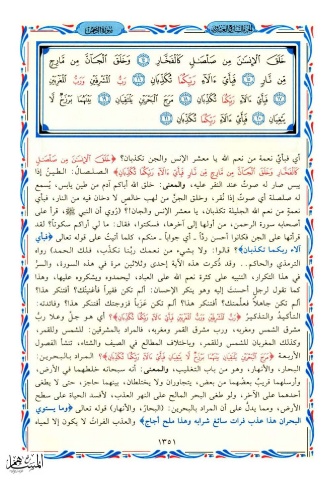 سورة الرحمن
خَلَقَ الْإِنسَٰنَ مِن صَلْصَٰلٍ كَالْفَخَّارِ ١٤ وَخَلَقَ الْجَآنَّ مِن مَّارِجٍ
مِّن نَّارٍ ١٥ فَبِأَيِّ ءَالَآءِ رَبِّكُمَا تُكَذِّبَانِ ١٦ رَبُّ الْمَشْرِقَيْنِ وَرَبُّ الْمَغْرِبَيْنِ
١٧ فَبِأَيِّ ءَالَآءِ رَبِّكُمَا تُكَذِّبَانِ ١٨ مَرَجَ الْبَحْرَيْنِ يَلْتَقِيَانِ ١٩ بَيْنَهُمَا بَرْزَخٌ لَّا
يَبْغِيَانِ ٢٠ فَبِأَيِّ ءَالَآءِ رَبِّكُمَا تُكَذِّبَانِ ٢١
أي فبأيِّ نعمة من نعم الله يا معشر الإنس والجن تكذبان؟ ﴿خَلَقَ الْإِنسَٰنَ مِن صَلْصَٰلٍ
كَالْفَخَّارِ وَخَلَقَ الْجَآنَّ مِن مَّارِجٍ مِّن نَّارٍ فَبِأَيِّ ءَالَآءِ رَبِّكُمَا تُكَذِّبَانِ﴾ الصلصالُ: الطينُ إذا
يبس صار له صوتٌ عند النقر عليه، والمعنى: خلق الله أباكم آدم من طين يابس، يُسمع
له صلصلة أي صوت إذا نُقر، وخلق الجنَّ من لهب خالصٍ لا دخان فيه من النار، فبأي
نعمةٍ من نعم الله الجليلة تكذبان، يا معشر الإنس والجان؟! (رُوي أن النبي ﷺ، قرأ على
أصحابه سورة الرحمن، من أولها إلى آخرها، فسكتوا، فقال: ما لي أراكم سكوتاً؟ لقد
قرأتها على الجن فكانوا أحسن ردًّا ـ أي جواباً ـ منكم، كلما أتيتُ على قوله تعالى ﴿فبأي
آلاء ربكما تكذبان﴾؟ قالوا: ولا بشيء من نعمك ربَّنا نكذِّب، فلك الحمد) رواه
الترمذي والحاكم.. وقد ذُكرت هذه الآية إحدى وثلاثين مرة في هذه السورة، والسرُّ
في هذا التكرار، التنبيه على كثرة نعم الله على العباد، ليحمدوه ويشكروه عليها، وهذا
كما تقول لرجلٍ أحسنتَ إليه وهو ينكر الإحسان: ألم تكن فقيراً فأغنيتُك؟ أفتنكر هذا؟
ألم تكن جاهلاً فعلَّمتك؟ أفتنكر هذا؟ ألم تكن عَزَباً فزوجتك أفتنكر هذا؟ وفائدته:
التأكيدُ والتذكيرُ ﴿رَبُّ الْمَشْرِقَيْنِ وَرَبُّ الْمَغْرِبَيْنِ فَبِأَيِّ ءَالَآءِ رَبِّكُمَا تُكَذِّبَانِ﴾؟ أي هو جلَّ وعلا ربُّ
مشرق الشمس ومغربه، ورب مشرق القمر ومغربه، فالمراد بالمشرقين: للشمس وللقمر،
وكذلك المغربان للشمس وللقمر، وباختلاف المطالع في الصيف والشتاء، تنشأ الفصول
الأربعة ﴿مَرَجَ الْبَحْرَيْنِ يَلْتَقِيَانِ بَيْنَهُمَا بَرْزَخٌ لَّا يَبْغِيَانِ فَبِأَيِّ ءَالَآءِ رَبِّكُمَا تُكَذِّبَانِ﴾؟ المراد بالبحرين:
البحار، والأنهار، وهو من باب التغليب، والمعنى: أنه سبحانه خلطهما في الأرض،
وأرسلهما قريباً بعضهما من بعض، يتجاوران ولا يختلطان، بينهما حاجز، حتى لا يطغى
أحدهما على الآخر، ولو طغى البحر المالح على النهر العذب، لأفسد الحياة على سطح
الأرض، ومما يدلُّ على أن المراد بالبحرين: (البحارُ، والأنهار) قوله تعالى ﴿وما يستوي
البحران هذا عذب فرات سائغ شرابه وهذا ملح أجاج﴾ والعذب الفراتُ لا يكون إلا لمياه
١٣٥١